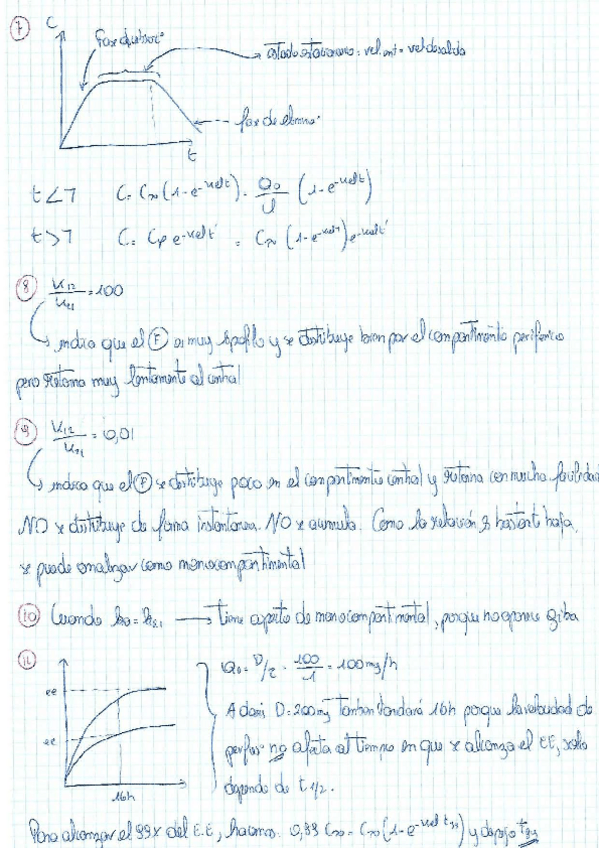 7 C
Fase de absorc°
estado estacionario: vel. ent = vel de salida
fase de elimina°
t
t < T C = C∞ (1 - e^-kel t) . Q0/Cl (1 - e^-kel t)
t > T C = Cp e^-kel t' = C∞ (1 - e^-kel T) e^-kel t'
8 K12/K21 = 100
indica que el F es muy lipofilo y se distribuye bien por el compartimento periferico
pero retorna muy lentamente al central
9 K12/K21 = 0,01
indica que el F se distribuye poco en el compartimento central y retorna con mucha facilidad
NO se distribuye de forma instantanea. NO se acumula. Como la relación es bastante baja,
se puede analizar como monocompartimental
10 Cuando = → tiene aspecto de monocompartimental, porque no aparece giba
11 ee
Q0 = D/ = 100/1 = 100 mg/h
A dosis D = 200mg tambien tardará 16h porque la velocidad de
ee
perfus° no afecta al tiempo en que se alcanza el EE, solo
depende de t 1/2.
16h
Para alcanzar el 99% del E.E, hacemos: 0,99 C∞ = C∞ (1 - e^-kel t99) y despejo t99